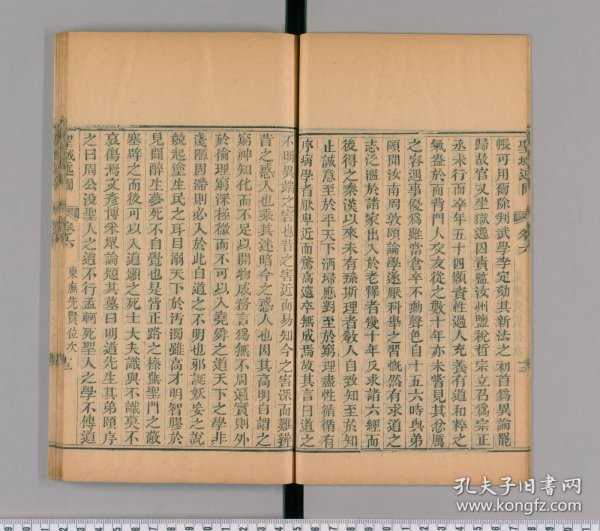 帳可用爾除判武學李定劾其新法之初首爲異論罷
歸故官又坐獄逸囚責監汝州鹽稅哲宗立召爲宗正
丞未行而卒年五十四顥資性過人充養有道和粹之
氣盎於面背門人交友從之數十年亦未嘗見其忿厲
之容遇事優爲雖當倉卒不動聲色自十五六時與弟
頤聞汝南周敦頤論學遂厭科舉之習慨然有求道之
志泛濫於諸家出入於老釋者幾十年反求諸六經而
後得之秦漢以來未有臻斯理者教人自致知至於知
止誠意至於平天下洒埽應對至於窮理盡性循循有
序病學者厭卑近而騖高遠卒無成焉故其言曰道之
不明異端之害也昔之害近而易知今之害深而難辨
昔之惑人也乘其迷暗今之惑人也因其高明自謂之
窮神知化而不足以開物成務言爲無不周遍實則外
於倫理窮深極微而不可以入堯舜之道天下之學非
淺陋固滯則必入於此自道之不明也邪誕妖妄之說
競起塗生民之耳目溺天下於汚濁雖高才明智膠於
見聞醉生夢死不自覺也是皆正路之蓁蕪聖門之蔽
塞辟之而後可以入道顥之死士大夫識與不識莫不
哀傷焉文彥博采眾論題其墓曰明道先生其弟頤序
之曰周公沒聖人之道不行孟軻死聖人之學不傳道
聖域述聞
卷六
東廡先賢位次
三
孔夫子旧书网
kongfz.com